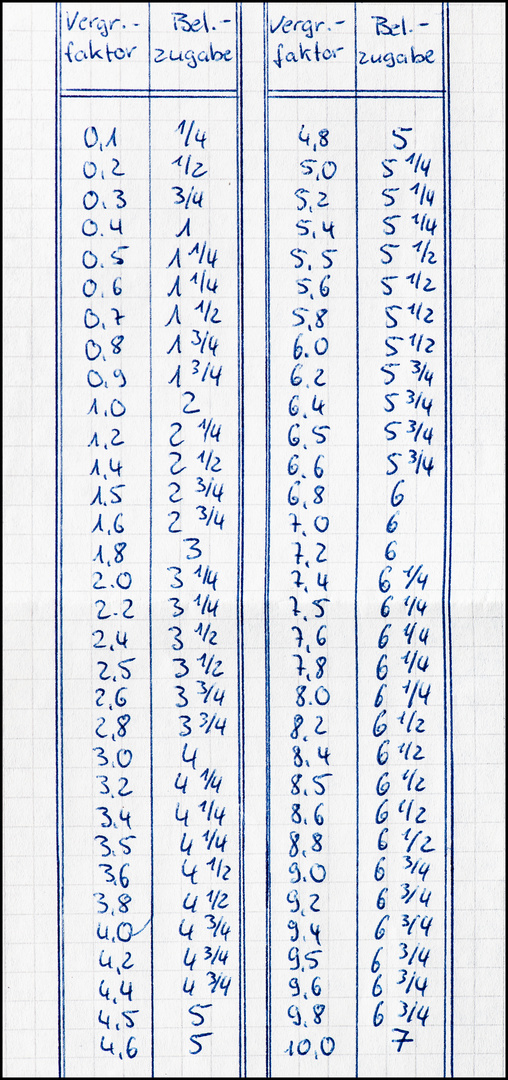 Vergr.- Bel.- Vergr.- Bel.-
faktor zugabe faktor zugabe
0,1 1/4 4,8 5
0,2 1/2 5,0 5 1/4
0.3 3/4 5,2 5 1/4
0.4 1 5,4 5 1/4
0.5 1 1/4 5,5 5 1/2
0.6 1 1/4 5,6 5 1/2
0,7 1 1/2 5,8 5 1/2
0,8 1 3/4 6.0 5 1/2
0,9 1 3/4 6.2 5 3/4
1,0 2 6,4 5 3/4
1,2 2 1/4 6,5 5 3/4
1,4 2 1/2 6.6 5 3/4
1,5 2 3/4 6,8 6
1,6 2 3/4 7,0 6
1,8 3 7,2 6
2.0 3 1/4 7,4 6 1/4
2.2 3 1/4 7,5 6 1/4
2,4 3 1/2 7,6 6 1/4
2,5 3 1/2 7,8 6 1/4
2,6 3 3/4 8.0 6 1/4
2,8 3 3/4 8,2 6 1/2
3.0 4 8.4 6 1/2
3.2 4 1/4 8.5 6 1/2
3,4 4 1/4 8,6 6 1/2
3,5 4 1/4 8,8 6 1/2
3,6 4 1/2 9.0 6 3/4
3,8 4 1/2 9,2 6 3/4
4,0 4 3/4 9,4 6 3/4
4,2 4 3/4 9,5 6 3/4
4,4 4 3/4 9,6 6 3/4
4,5 5 9,8 6 3/4
4,6 5 10,0 7